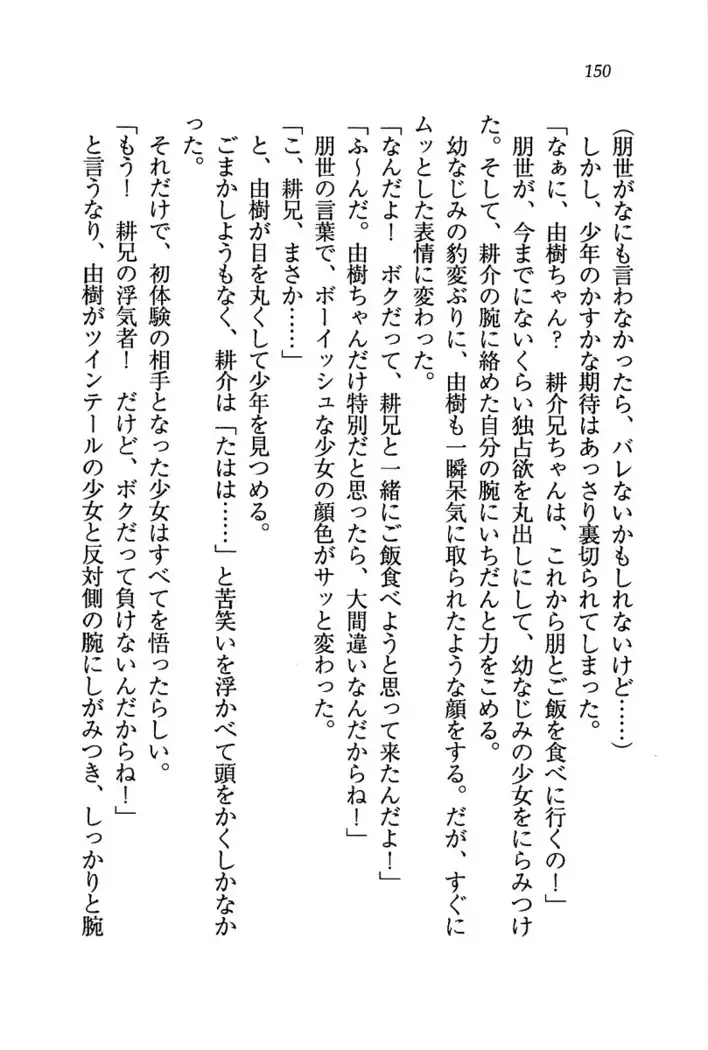 150
(朋世がなにも言わなかったら、バレないかもしれないけど……)
しかし、少年のかすかな期待はあっさり裏切られてしまった。
「なぁに、由樹ちゃん？　耕介兄ちゃんは、これから朋とご飯を食べに行くの！」
朋世が、今までにないくらい独占欲を丸出しにして、幼なじみの少女をにらみつけ
た。そして、耕介の腕に絡めた自分の腕にいちだんと力をこめる。
幼なじみの豹変ぶりに、由樹も一瞬呆気に取られたような顔をする。だが、すぐに
ムッとした表情に変わった。
「なんだよ！　ボクだって、耕兄と一緒にご飯食べようと思って来たんだよ！」
「ふ〜んだ。由樹ちゃんだけ特別だと思ったら、大間違いなんだからね！」
朋世の言葉で、ボーイッシュな少女の顔色がサッと変わった。
「こ、耕兄、まさか……」
と、由樹が目を丸くして少年を見つめる。
ごまかしようもなく、耕介は「たはは……」と苦笑いを浮かべて頭をかくしかなか
った。
それだけで、初体験の相手となった少女はすべてを悟ったらしい。
「もう！　耕兄の浮気者！　だけど、ボクだって負けないんだからね！」
と言うなり、由樹がツインテールの少女と反対側の腕にしがみつき、しっかりと腕